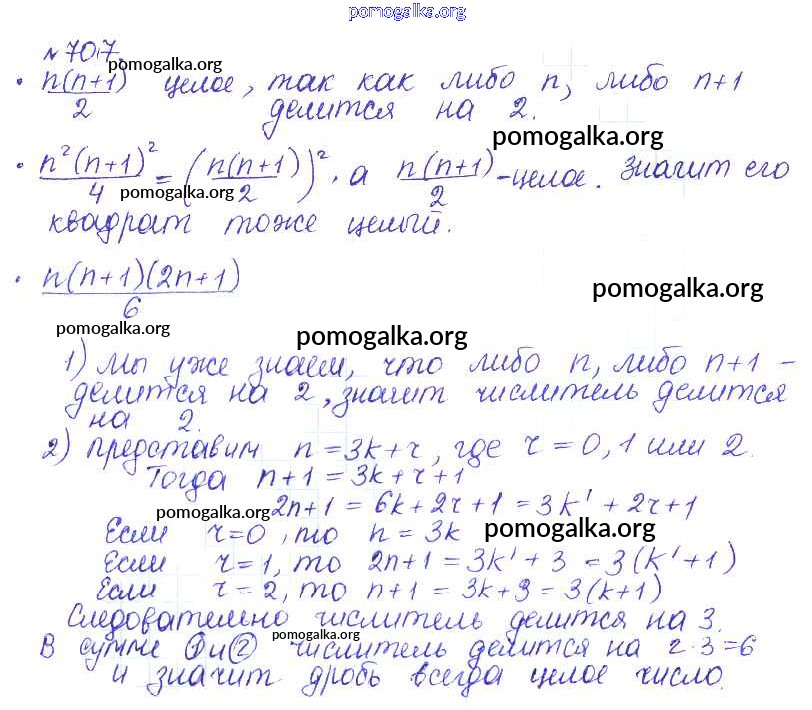 pomogalka.org
№ 707 pomogalka.org
• n(n+1)/2 целое, так как либо n, либо n+1
делится на 2.
pomogalka.org
• n²(n+1)²/4 = (n(n+1)/2)², а n(n+1)/2 - целое. Значит его
pomogalka.org
квадрат тоже целый.
• n(n+1)(2n+1)/6
pomogalka.org
pomogalka.org
pomogalka.org
1) Мы уже знаем, что либо n, либо n+1 -
делится на 2, значит числитель делится
на 2.
2) Представим n = 3k + r, где r = 0, 1 или 2.
Тогда n+1 = 3k + r + 1
2n+1 = 6k + 2r + 1 = 3k' + 2r + 1
pomogalka.org
Если r = 0, то n = 3k pomogalka.org
Если r = 1, то 2n+1 = 3k' + 3 = 3(k'+1)
Если r = 2, то n+1 = 3k+3 = 3(k+1)
Следовательно числитель делится на 3.
pomogalka.org
В сумме ① и ② числитель делится на 2·3=6
и значит дробь всегда целое число.